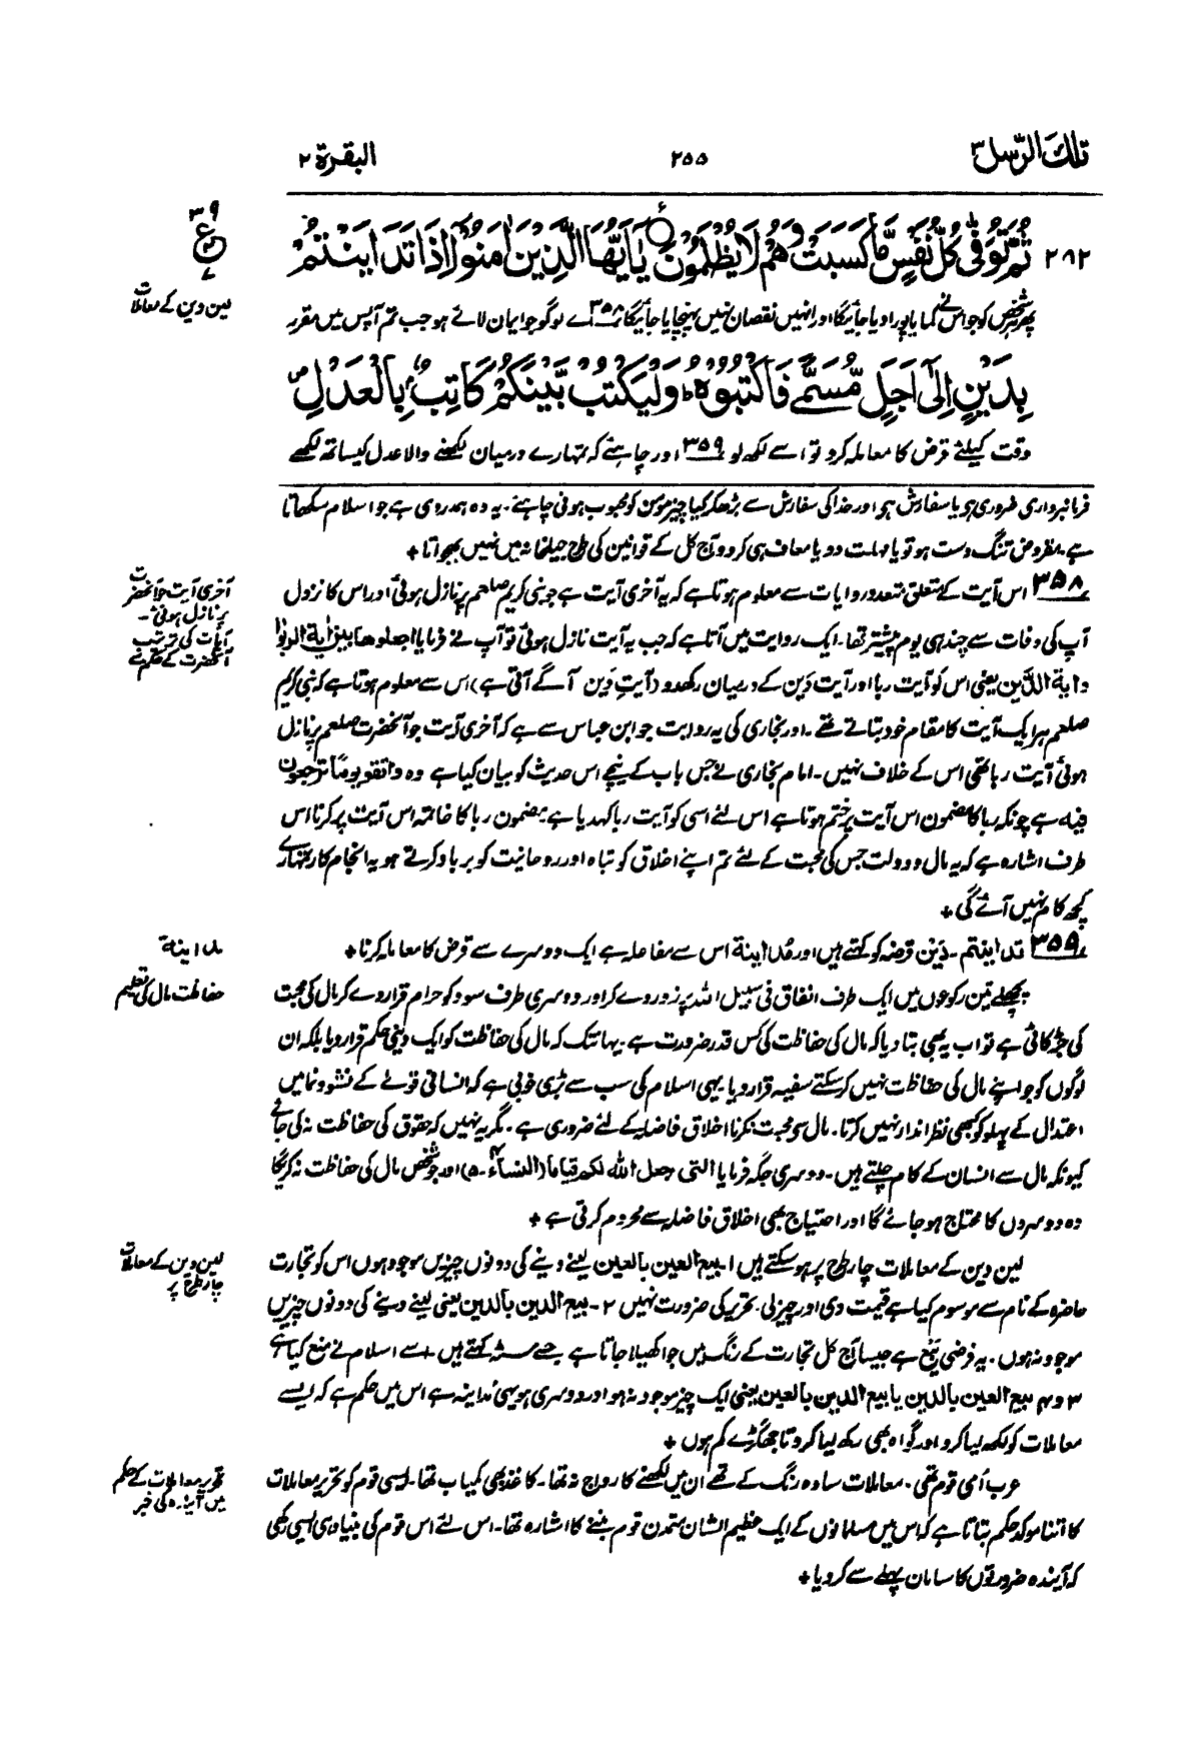 تلك الرّسل ۳
۲۵۵
البقرة ۲
۳۹
ع
۲۸۲ ثُمَّ تُوَفّٰى كُلُّ نَفْسٍ مَّا كَسَبَتْ وَهُمْ لَا يُظْلَمُوْنَ ۝ يٰٓاَيُّهَا الَّذِيْنَ اٰمَنُوْٓا اِذَا تَدَايَنْتُمْ
پھر ہر شخص کو جو اس نے کمایا پورا دیا جائیگا اور انہیں نقصان نہیں پہنچایا جائیگا ۳۵۸ اے لوگو جو ایمان لائے ہو جب تم آپس میں مقرر
لین دین کے معاملات
بِدَيْنٍ اِلٰٓى اَجَلٍ مُّسَمًّى فَاكْتُبُوْهُ ؕ وَلْيَكْتُبْ بَّيْنَكُمْ كَاتِبٌۢ بِالْعَدْلِ ۪
وقت کیلئے قرض کا معاملہ کرو تو اسے لکھ لو ۳۵۹ اور چاہئے کہ تمہارے درمیان لکھنے والا عدل کیساتھ لکھے
فرمانبرداری ضروری ہو یا سفارش ہو اور خدا کی سفارش سے بڑھکر کیا چیز مومن کو محبوب ہونی چاہئے۔ یہ وہ ہمدردی ہے جو اسلام سکھاتا
ہے۔ مقروض تنگ دست ہو تو یا مہلت دو یا معاف ہی کر دو آج کل کے قوانین کی طرح جیلخانہ میں نہیں بھجواتا +
۳۵۸ اس آیت کے متعلق متعدد روایات سے معلوم ہوتا ہے کہ یہ آخری آیت ہے جو نبی کریم صلعم پر نازل ہوئی اور اس کا نزول
آپ کی وفات سے چند ہی یوم پیشتر تھا۔ ایک روایت میں آتا ہے کہ جب یہ آیت نازل ہوئی تو آپ نے فرمایا اجعلوھا بین اٰیة الربوٰا
واٰیة الدَّین یعنی اس کو آیت ربا اور آیت دَین کے درمیان رکھدو (آیتِ دَین آگے آتی ہے) اس سے معلوم ہوتا ہے کہ نبی کریم
صلعم ہر ایک آیت کا مقام خود بتاتے تھے۔ اور بخاری کی یہ روایت جو ابن عباس سے ہے کہ آخری آیت جو آنحضرت صلعم پر نازل
ہوئی آیت ربا تھی اس کے خلاف نہیں۔ امام بخاری نے جس باب کے نیچے اس حدیث کو بیان کیا ہے وہ واتقو یومًا ترجعون
فیہ ہے چونکہ ربا کا مضمون اس آیت پر ختم ہوتا ہے اس لئے اسی کو آیت ربا کہدیا ہے مضمون ربا کا خاتمہ اس آیت پر کرنا اس
طرف اشارہ ہے کہ یہ مال و دولت جس کی محبت کے لئے تم اپنے اخلاق کو تباہ اور روحانیت کو برباد کرتے ہو یہ انجام کار تمہارے
کچھ کام نہیں آئے گی +
آخری آیت جو آنحضرت
پر نازل ہوئی۔
آیات کی ترتیب
آنحضرت کے حکم سے
۳۵۹ تداینتم۔ دَیْن قرضہ کو کہتے ہیں اور مُداینة اس سے مفاعلہ ہے ایک دوسرے سے قرض کا معاملہ کرنا +
مداینة
پچھلے تین رکوعوں میں ایک طرف انفاق فی سبیل اللہ پر زور دے کر اور دوسری طرف سود کو حرام قرار دے کر مال کی محبت
کی جڑ کاٹی ہے تو اب یہ بھی بتا دیا کہ مال کی حفاظت کی کس قدر ضرورت ہے۔ یہانتک کہ مال کی حفاظت کو ایک دینی حکم قرار دیا بلکہ ان
لوگوں کو جو اپنے مال کی حفاظت نہیں کرسکتے سفیہ قرار دیا۔ یہی اسلام کی سب سے بڑی خوبی ہے کہ انسانی قوٰے کے نشوونما میں
اعتدال کے پہلو کو کبھی نظر انداز نہیں کرتا۔ مال سے محبت نہ کرنا اخلاق فاضلہ کے لئے ضروری ہے۔ مگر یہ نہیں کہ حقوق کی حفاظت نہ کی جائے
کیونکہ مال سے انسان کے کام چلتے ہیں۔ دوسری جگہ فرمایا التی جعل اللہ لکم قیاما (النساء۴۔ ۵) اور جو شخص مال کی حفاظت نہ کریگا
وہ دوسروں کا محتاج ہو جائے گا اور احتیاج بھی اخلاق فاضلہ سے محروم کرتی ہے +
حفاظت مال کی تعلیم
لین دین کے معاملات چار طرح پر ہو سکتے ہیں ۱۔ بیع العین بالعین لینے دینے کی دونوں چیزیں موجود ہوں اس کو تجارت
حاضرہ کے نام سے موسوم کیا ہے قیمت دی اور چیز لی۔ تحریر کی ضرورت نہیں ۲۔ بیع الدین بالدین یعنی لینے دینے کی دونوں چیزیں
موجود نہ ہوں۔ یہ فرضی بیع ہے جیسا آج کل تجارت کے رنگ میں جوا کھیلا جاتا ہے جسے سٹہ کہتے ہیں۔ اسے اسلام نے منع کیا ہے
۳ و ۴ بیع العین بالدین یا بیع الدین بالعین یعنی ایک چیز موجود نہ ہو اور دوسری ہو یہی مُداینہ ہے اس میں حکم ہے کہ ایسے
معاملات کو لکھ لیا کرو اور گواہ بھی رکھ لیا کرو تا جھگڑے کم ہوں +
لین دین کے معاملات
چار طرح پر
عرب اُمی قوم تھی۔ معاملات سادہ رنگ کے تھے ان میں لکھنے کا رواج نہ تھا۔ کاغذ بھی کمیاب تھا۔ ایسی قوم کو تحریر معاملات
کا اتنا موکد حکم بتاتا ہے کہ اس میں مسلمانوں کے ایک عظیم الشان متمدن قوم بننے کا اشارہ تھا۔ اس لئے اس قوم کی بنیاد ہی ایسی رکھی
کہ آیندہ ضرورتوں کا سامان پہلے سے کر دیا +
تحریر معاملات کے حکم
میں آیندہ کی خبر